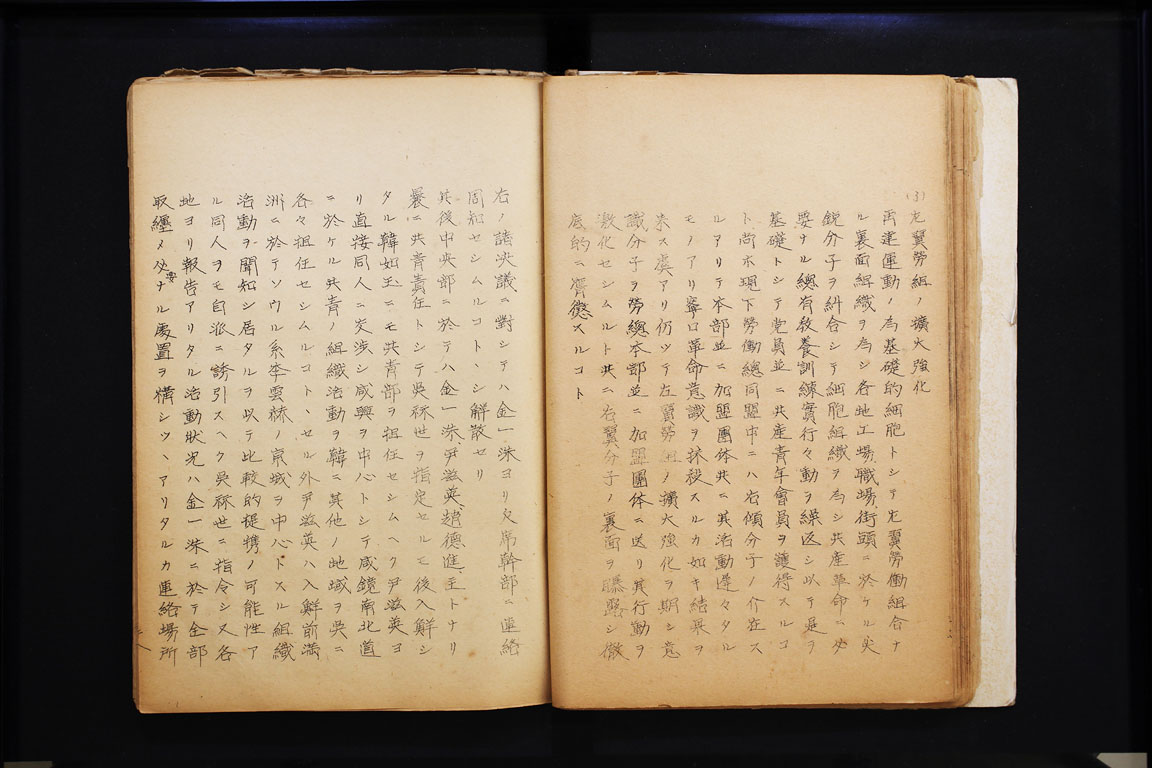 (3) 左翼勞組ノ擴大強化
再建運動ノ為基礎的細胞トシテ左翼勞働組合ナ
ル裏面組織ヲ為シ各地工場職場街頭ニ於ケル尖
鋭分子ヲ糾合シテ細胞組織ヲ為シ共産革命ニ必
要ナル總有教養訓練實行々動ヲ繰返シ以テ是ヲ
基礎トシテ党員並ニ共産青年會員ヲ獲得スルコ
ト尚ホ現下勞働總同盟中ニハ右傾分子ノ介在ス
ルアリテ本部並ニ加盟團体共ニ其活動遅々タル
モノアリ寧ロ革命意識ヲ抹殺スルカ如キ結果ヲ
来ス虞アリ仍ツテ左翼勞組ノ擴大強化ヲ期シ意
識分子ヲ勞總本部並ニ加盟團体ニ送リ其行動ヲ
激化セシムルト共ニ右翼分子ノ裏面ヲ曝露シ徹
底的ニ膺懲スルコト
右ノ諸決議ニ對シテハ金一洙ヨリ欠席幹部ニ連絡
周知セシムルコトヽシ解散セリ
其後中央部ニ於テハ金一洙、尹滋英、趙德進主トナリ
曩ニ共青責任トシテ吳秝世ヲ指定セルモ後入鮮シ
タル韓如玉ニモ共青部ヲ担任セシムヘク尹滋英ヨ
リ直接同人ニ交渉シ咸興ヲ中心トシテ咸鏡南北道
ニ於ケル共青ノ組織活動ヲ韓ニ其他ノ地域ヲ吳ニ
各々担任セシムルコトヽセル外尹滋英ハ入鮮前満
洲ニ於テソウル系李雲赫ノ京城ヲ中心トスル組織
活動ヲ聞知シ居タルヲ以テ比較的提携ノ可能性ア
ル同人ヲモ自派ニ誘引スヘク吳秝世ニ指令シ又各
地ヨリ報告アリタル活動狀況ハ金一洙ニ於テ全部
取纏メ必要ナル處置ヲ構シツヽアリタルカ連絡場所